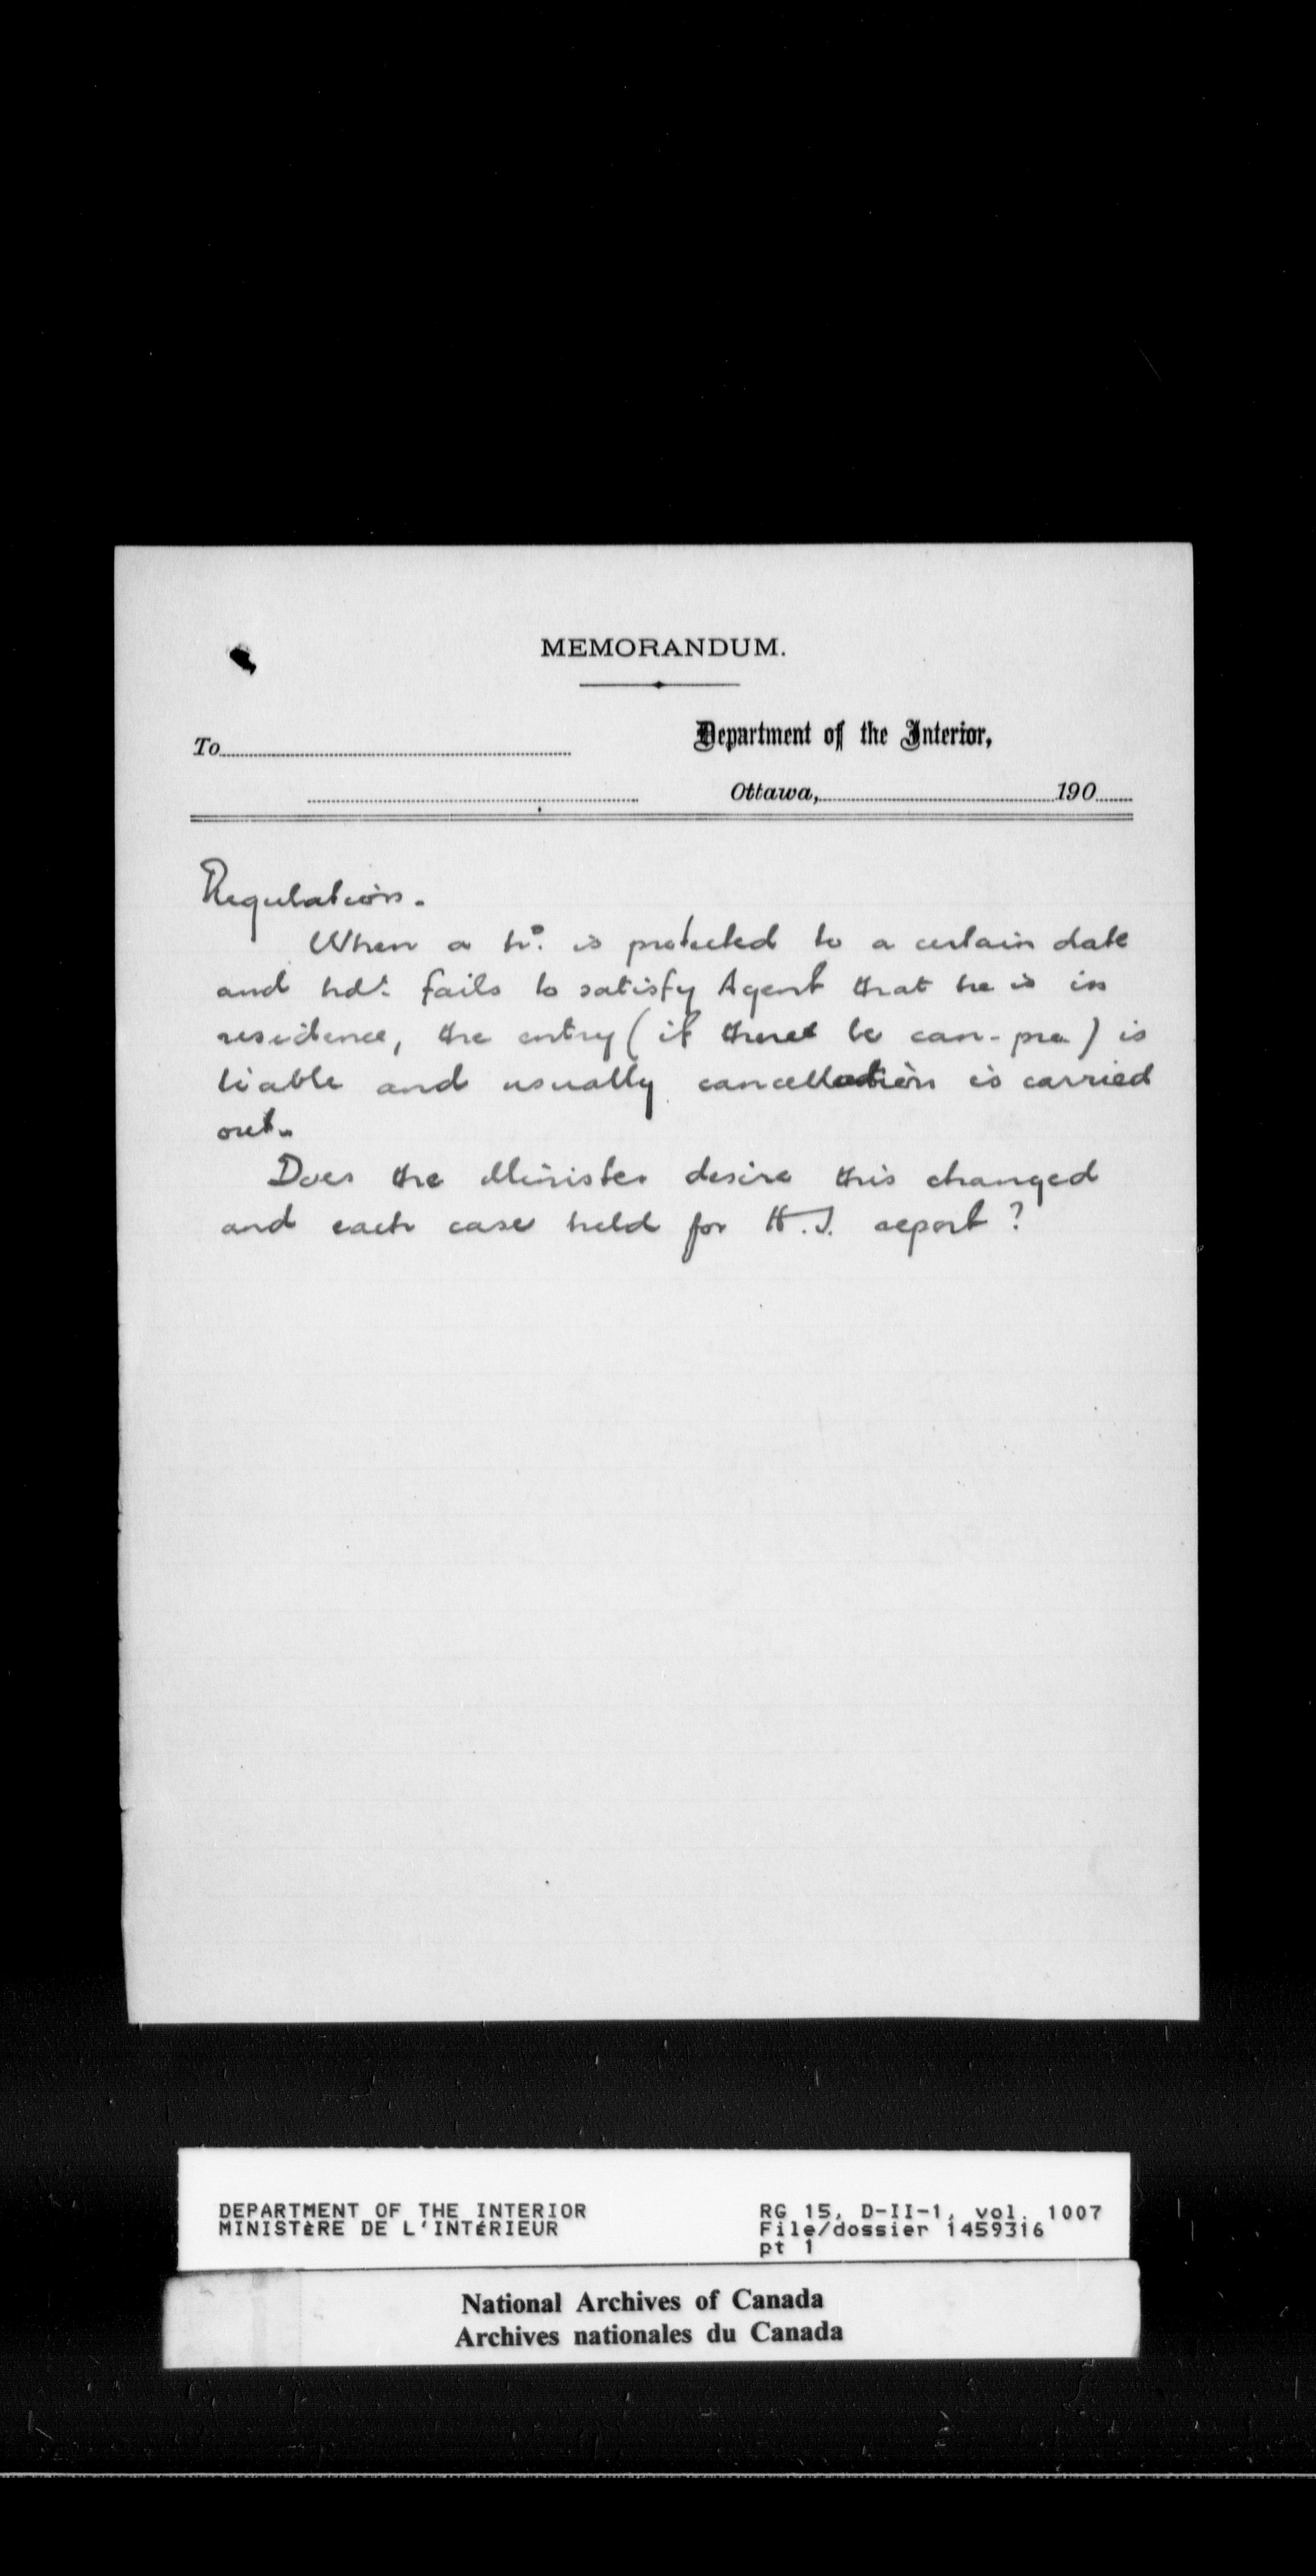 MEMORANDUM.
To
Department of the Interior,
Ottawa, 190
Regulation.
When a hd. is protected to a certain date
and hdr. fails to satisfy Agent that he is in
residence, the entry (if there be can-pro) is
liable and usually cancellation is carried
out.
Does the Minister desire this changed
and each case held for H.I. report?
DEPARTMENT OF THE INTERIOR
MINISTèRE DE L'INTéRIEUR
RG 15, D-II-1, vol. 1007
File/dossier 1459316
pt 1
National Archives of Canada
Archives nationales du Canada